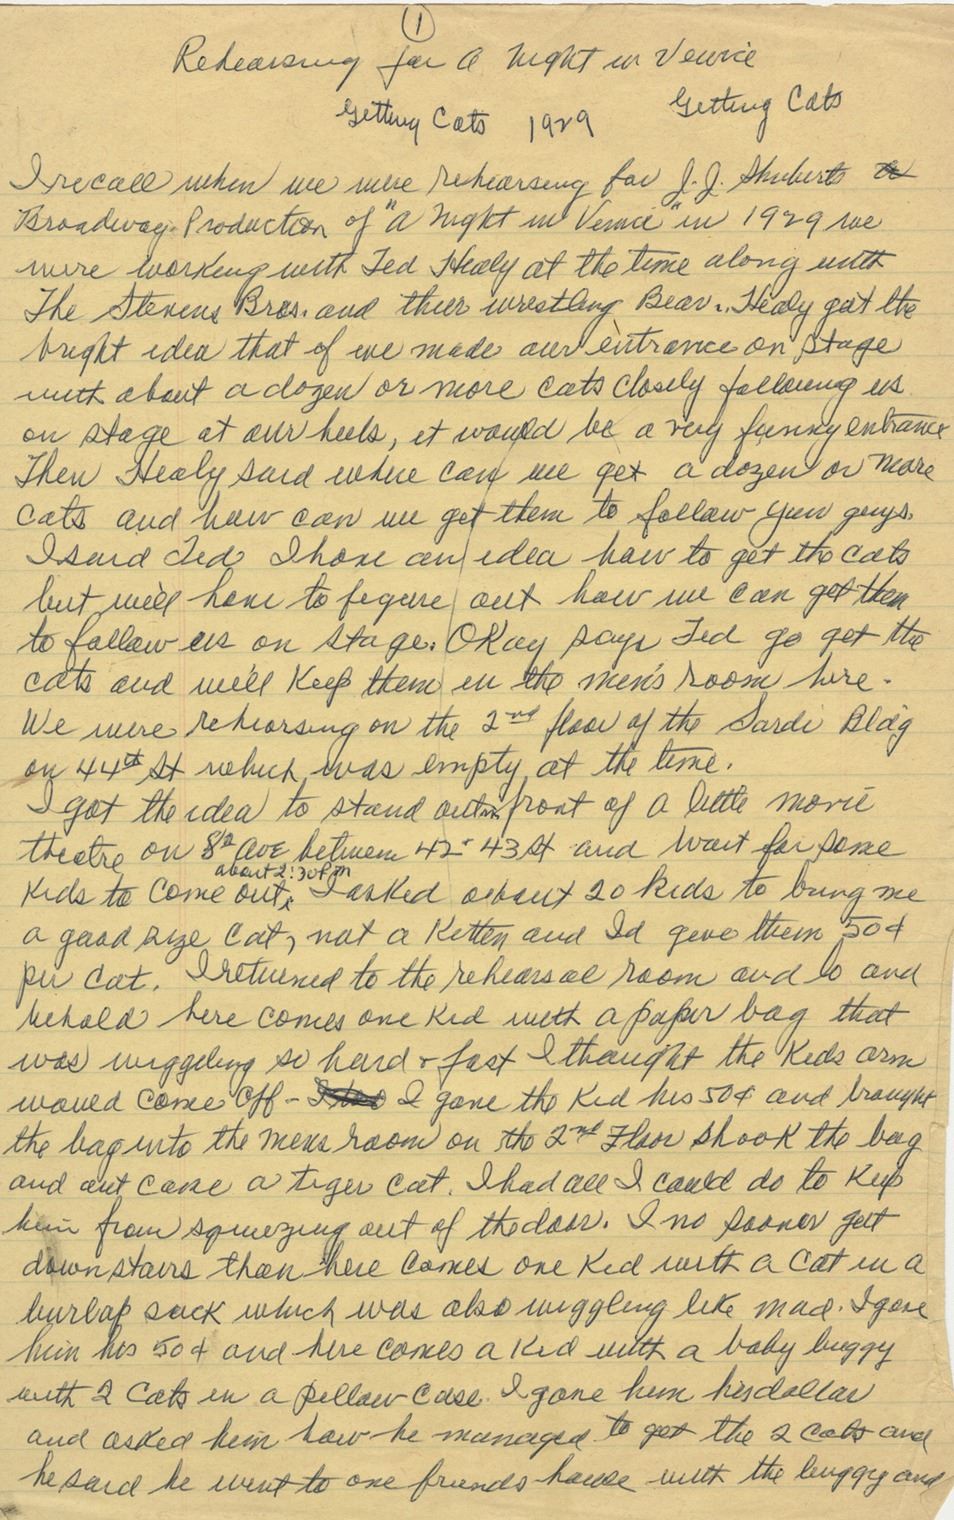 1
Rehearsing for A Night in Venice
Getting Cats 1929 Getting Cats
I recall when we were rehearsing for J.J. Shuberts
Broadway Production of "A Night in Venice" in 1929 we
were working with Ted Healy at the time along with
The Stevens Bros. and their wrestling Bear. Healy got the
bright idea that if we made our entrance on stage
with about a dozen or more cats closely following us
on stage at our heels, it would be a very funny entrance
Then Healy said where can we get a dozen or more
cats and how can we get them to follow you guys.
I said Ted I have an idea how to get the cats
but we'll have to figure out how we can get them
to follow us on stage. Okay says Ted go get the
cats and we'll keep them in the men's room here.
We were rehearsing on the 2nd floor of the Sardi Bldg
on 44th St which was empty at the time.
I got the idea to stand out in front of a little movie
theatre on 8th Ave between 42 - 43 St and wait for some
about 2:30 Pm
kids to come out. I asked about 20 kids to bring me
a good size cat, not a kitten and Id give them 50¢
per cat. I returned to the rehearsal room and lo and
behold here comes one kid with a paper bag that
was wiggeling so hard & fast I thought the kids arm
would come off - I gave the kid his 50¢ and brought
the bag into the mens room on the 2nd Floor shook the bag
and out came a tiger cat. I had all I could do to keep
him from squeezing out of the door. I no sooner got
down stairs than here comes one kid with a cat in a
burlap sack which was also wiggling like mad. I gave
him his 50¢ and here comes a kid with a baby buggy
with 2 cats in a pillow case. I gave him his dollar
and asked him how he managed to get the 2 cats and
he said he went to one friends house with the buggy and